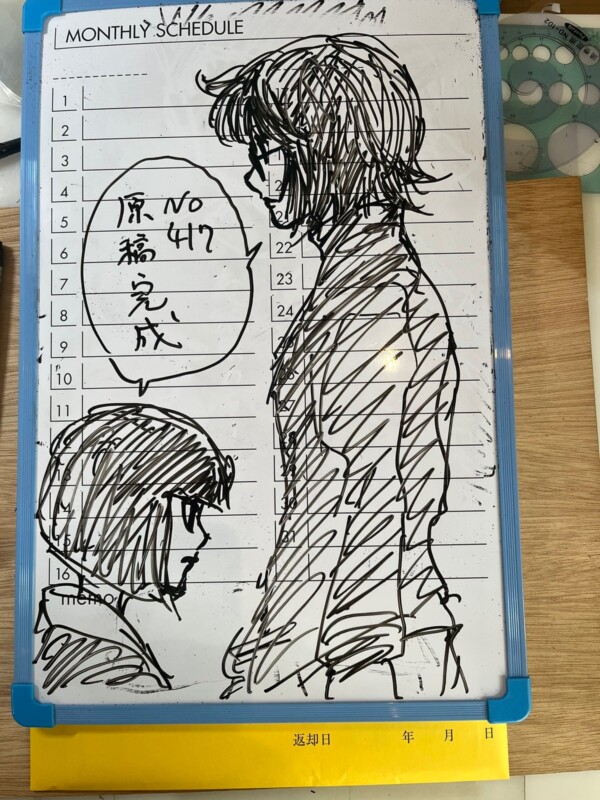 MONTHLY SCHEDULE
1
2
3
4
5
6
7
8
9
10
11
14
15
16
memo
22
23
24
31
No
417
原稿完成
返却日 年 月 日